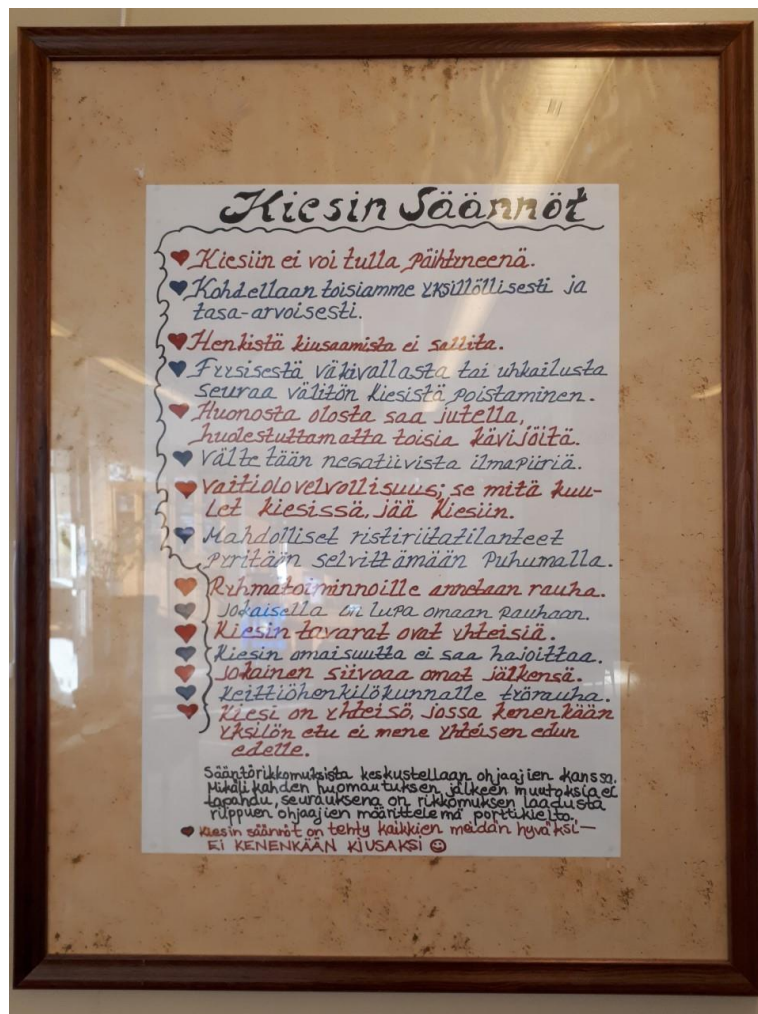 Kiesin Säännöt
Kiesiin ei voi tulla päihtyneenä.
Kohdellaan toisiamme yksillöllisesti ja
tasa-arvoisesti.
Henkistä kiusaamista ei sallita.
Fyysisestä väkivallasta tai uhkailusta
seuraa välitön kiesistä poistaminen.
Huonosta olosta saa jutella,
huolestuttamatta toisia kävijöitä.
Vältetään negatiivista ilmapiiriä.
Vaitiolovelvollisuus; se mitä kuu-
let kiesissä, jää Kiesiin.
Mahdolliset ristiriitatilanteet
pyritään selvittämään Puhumalla.
Ryhmätoiminnoille annetaan rauha.
Jokaisella on lupa omaan Rauhaan.
Kiesin tavarat ovat yhteisiä.
Kiesin omaisuutta ei saa hajoittaa.
Jokainen siivoaa omat jälkensä.
Keittiöhenkilökunnalle työrauha.
Kiesi on yhteisö, jossa kenenkään
yksilön etu ei mene yhteisen edun
edelle.
Sääntörikkomuksista keskustellaan ohjaajien kanssa.
Mikäli kahden huomautuksen jälkeen muutoksia ei
tapahdu, seurauksena on rikkomuksen laadusta
riippuen ohjaajien määrittelemä porttikielto.
Kiesin säännöt on tehty kaikkien meidän hyväksi—
EI KENENKÄÄN KIUSAKSI ☺